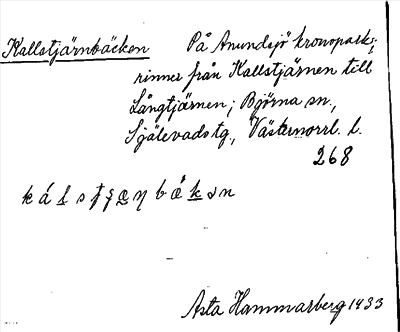 Kallstjärnbäcken På Anundsjö kronopark;
rinner från Kallstjärnen till
Långtjärnen; Björna sn.,
Själevads tg., Västernorrl. l.
268
Asta Hammarberg 1933